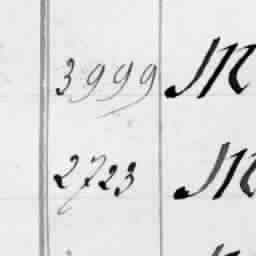 3999 M
2723 M